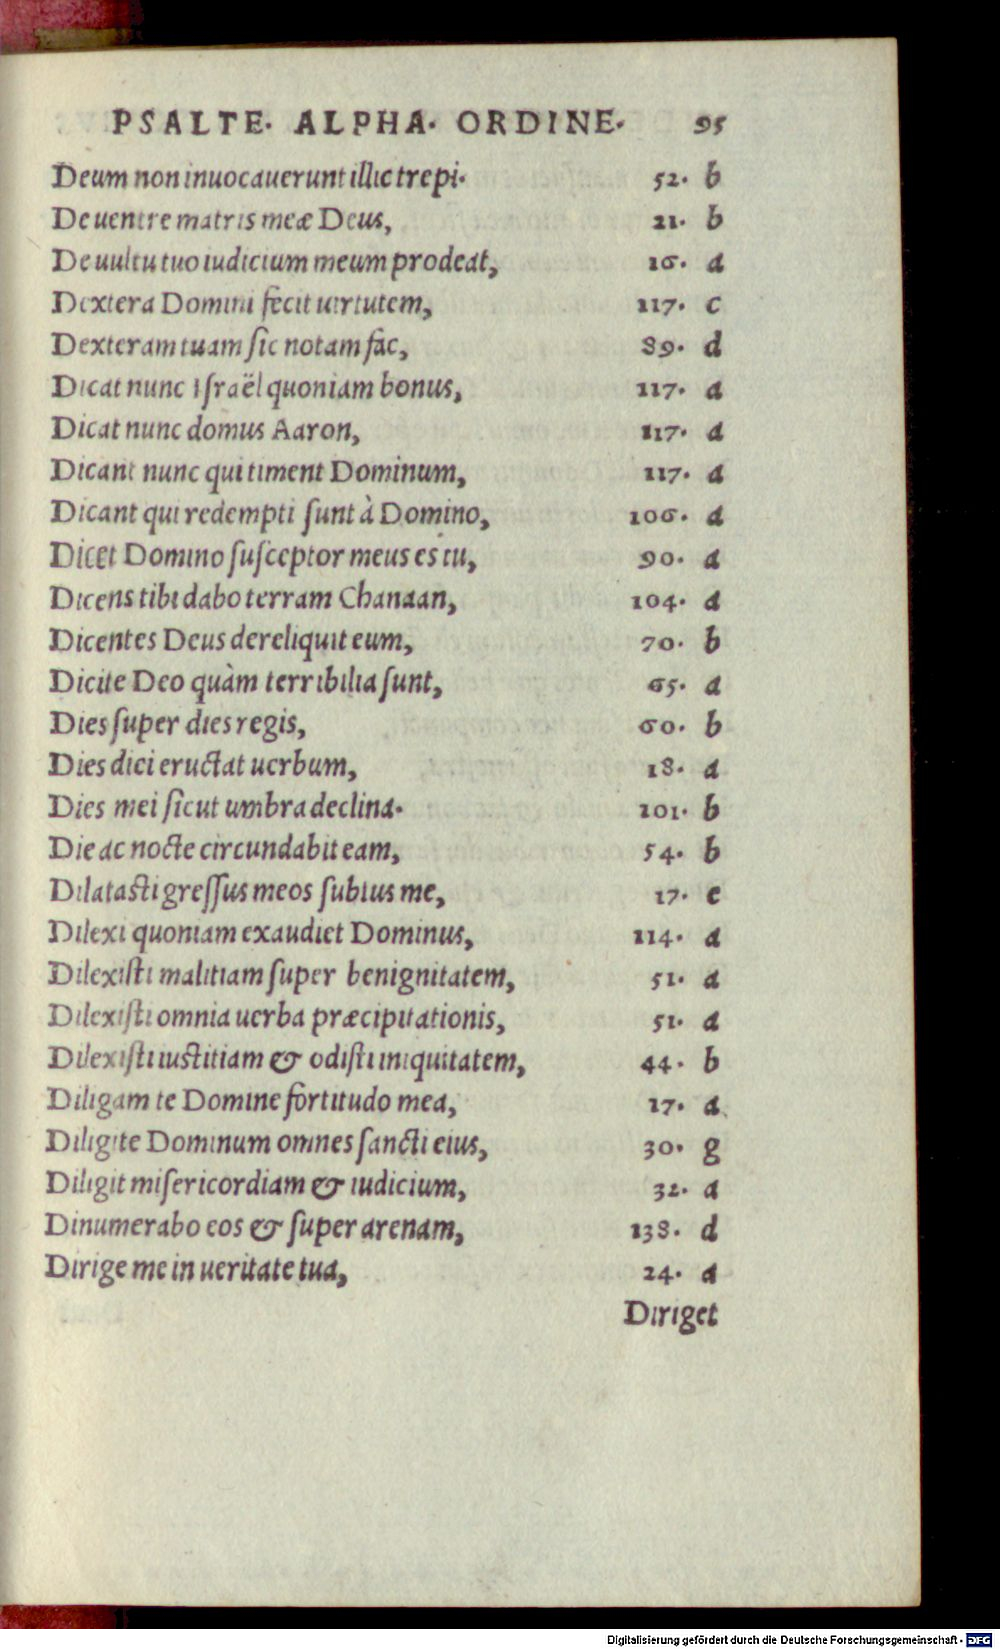 PSALTE· ALPHA· ORDINE· 95
Deum non inuocauerunt illic trepi· 52· b
De uentre matris meæ Deus, 21· b
De uultu tuo iudicium meum prodeat, 16· a
Dextera Domini fecit uirtutem, 117· c
Dexteram tuam ſic notam fac, 89· d
Dicat nunc Iſraël quoniam bonus, 117· a
Dicat nunc domus Aaron, 117· a
Dicant nunc qui timent Dominum, 117· a
Dicant qui redempti ſunt à Domino, 106· a
Dicet Domino ſuſceptor meus es tu, 90· a
Dicens tibi dabo terram Chanaan, 104· a
Dicentes Deus dereliquit eum, 70· b
Dicite Deo quàm terribilia ſunt, 65· a
Dies ſuper dies regis, 60· b
Dies diei eructat uerbum, 18· a
Dies mei ſicut umbra declina· 101· b
Die ac nocte circundabit eam, 54· b
Dilatasti greſſus meos ſubtus me, 17· e
Dilexi quoniam exaudiet Dominus, 114· a
Dilexiſti malitiam ſuper benignitatem, 51· a
Dilexiſti omnia uerba præcipitationis, 51· a
Dilexiſti iuſtitiam & odiſti iniquitatem, 44· b
Diligam te Domine fortitudo mea, 17· a
Diligite Dominum omnes ſancti eius, 30· g
Diligit miſericordiam & iudicium, 32· a
Dinumerabo eos & ſuper arenam, 138· d
Dirige me in ueritate tua, 24· a
Diriget
Digitalisierung gefördert durch die Deutsche Forschungsgemeinschaft - DFG